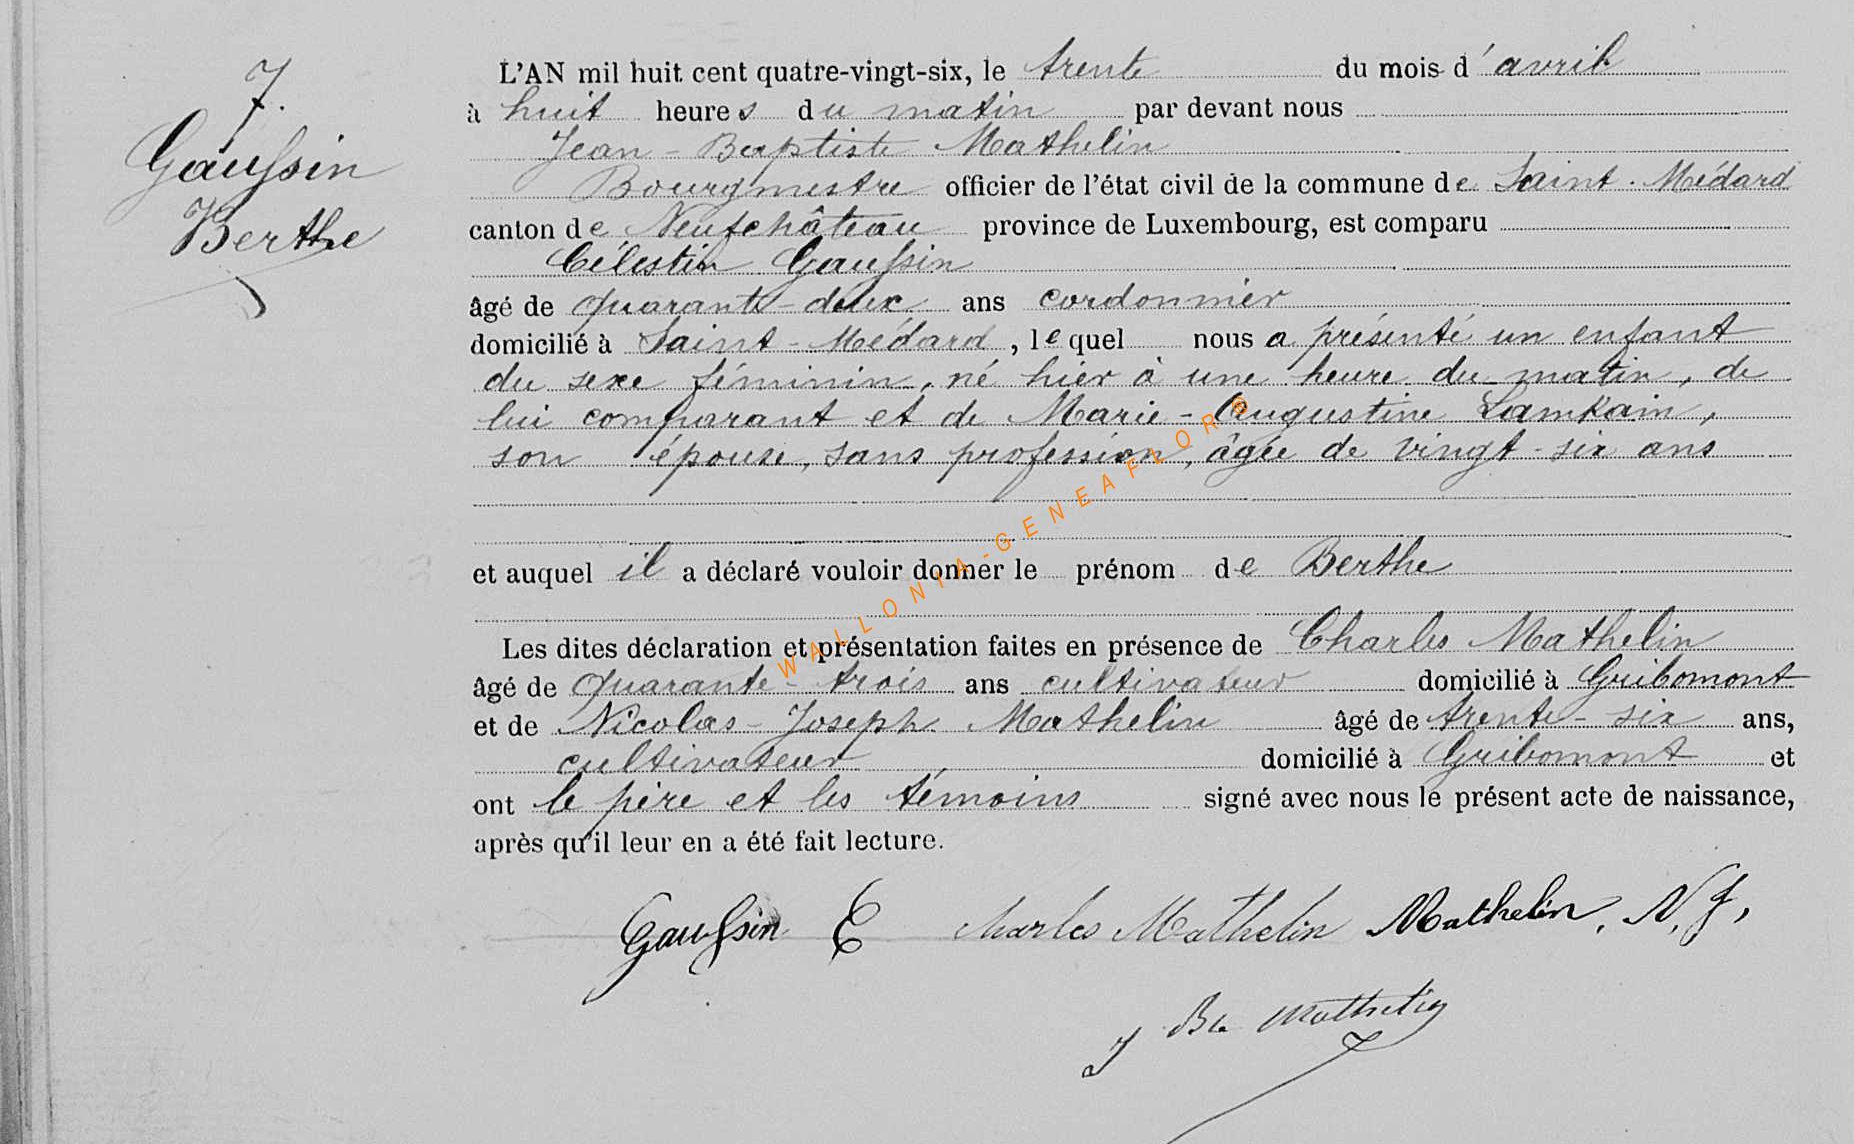 7.
Gaussin
Berthe
L'AN mil huit cent quatre-vingt-six, le trente du mois d'avril
à huit heures du matin par devant nous
Jean-Baptiste Mathelin
Bourgmestre officier de l'état civil de la commune de Saint-Médard
canton de Neufchâteau province de Luxembourg, est comparu
Célestin Gaussin
âgé de quarante-deux ans cordonnier
domicilié à Saint-Médard, lequel nous a présenté un enfant
du sexe féminin, né hier à une heure du matin, de
lui comparant et de Marie-Augustine Lamkain,
son épouse, sans profession, âgée de vingt-six ans
et auquel il a déclaré vouloir donner le prénom de Berthe
Les dites déclaration et présentation faites en présence de Charles Mathelin
âgé de quarante-trois ans cultivateur domicilié à Gribomont
et de Nicolas-Joseph Mathelin âgé de trente-six ans,
cultivateur domicilié à Gribomont et
ont le père et les témoins signé avec nous le présent acte de naissance,
après qu'il leur en a été fait lecture.
Gaussin C Charles Mathelin Mathelin, N. J,
J Bte Mathelin
WALLONIA-GENEAFLOR®